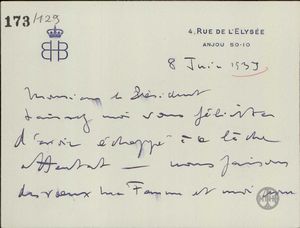 173/129
4, RUE DE L'ELYSÉE
ANJOU 50-10
8 Juin 1933
Monsieur le Président
Laissez moi vous féliciter
d'avoir échappé à ce lâche
attentat — nous faisons
des vœux ma Femme et moi pour